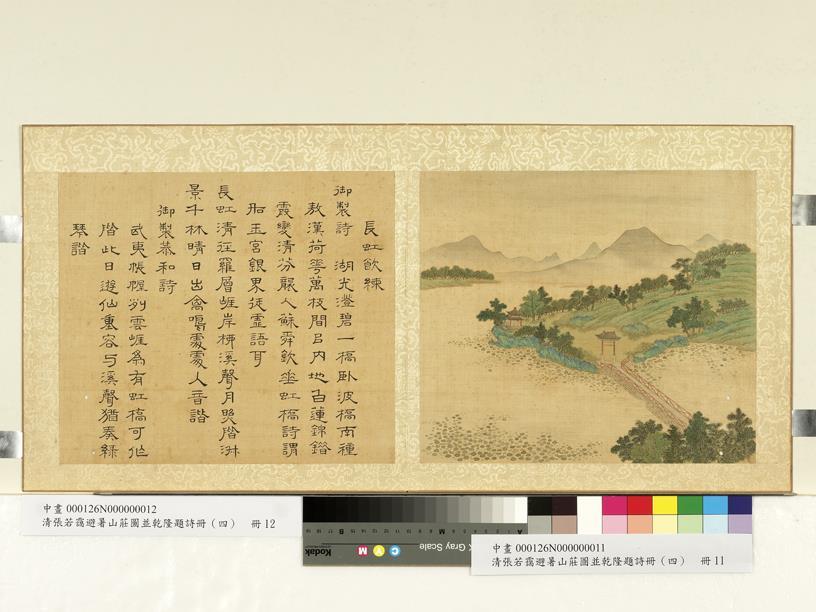 長虹飲練
御製詩 湖光澄碧一橋臥波橋南種
敖漢荷花萬枝間以內地白蓮錦錯
霞變清芬襲人蘇舜欽垂虹橋詩謂
如玉宮銀界徒虛語耳
長虹清徑羅層崖岸柳溪聲月照階淑
景千林晴日出禽鳴處處人音諧
御製恭和詩
武夷帳幄列雲崖為有虹橋可作
階此日遊仙重容與溪聲猶奏綠
琴諧
中畫 000126N000000012
清張若靄避暑山莊圖並乾隆題詩冊（四） 冊 12
Kodak
Gray Scale
C Y M
中畫 000126N000000011
清張若靄避暑山莊圖並乾隆題詩冊（四） 冊 11